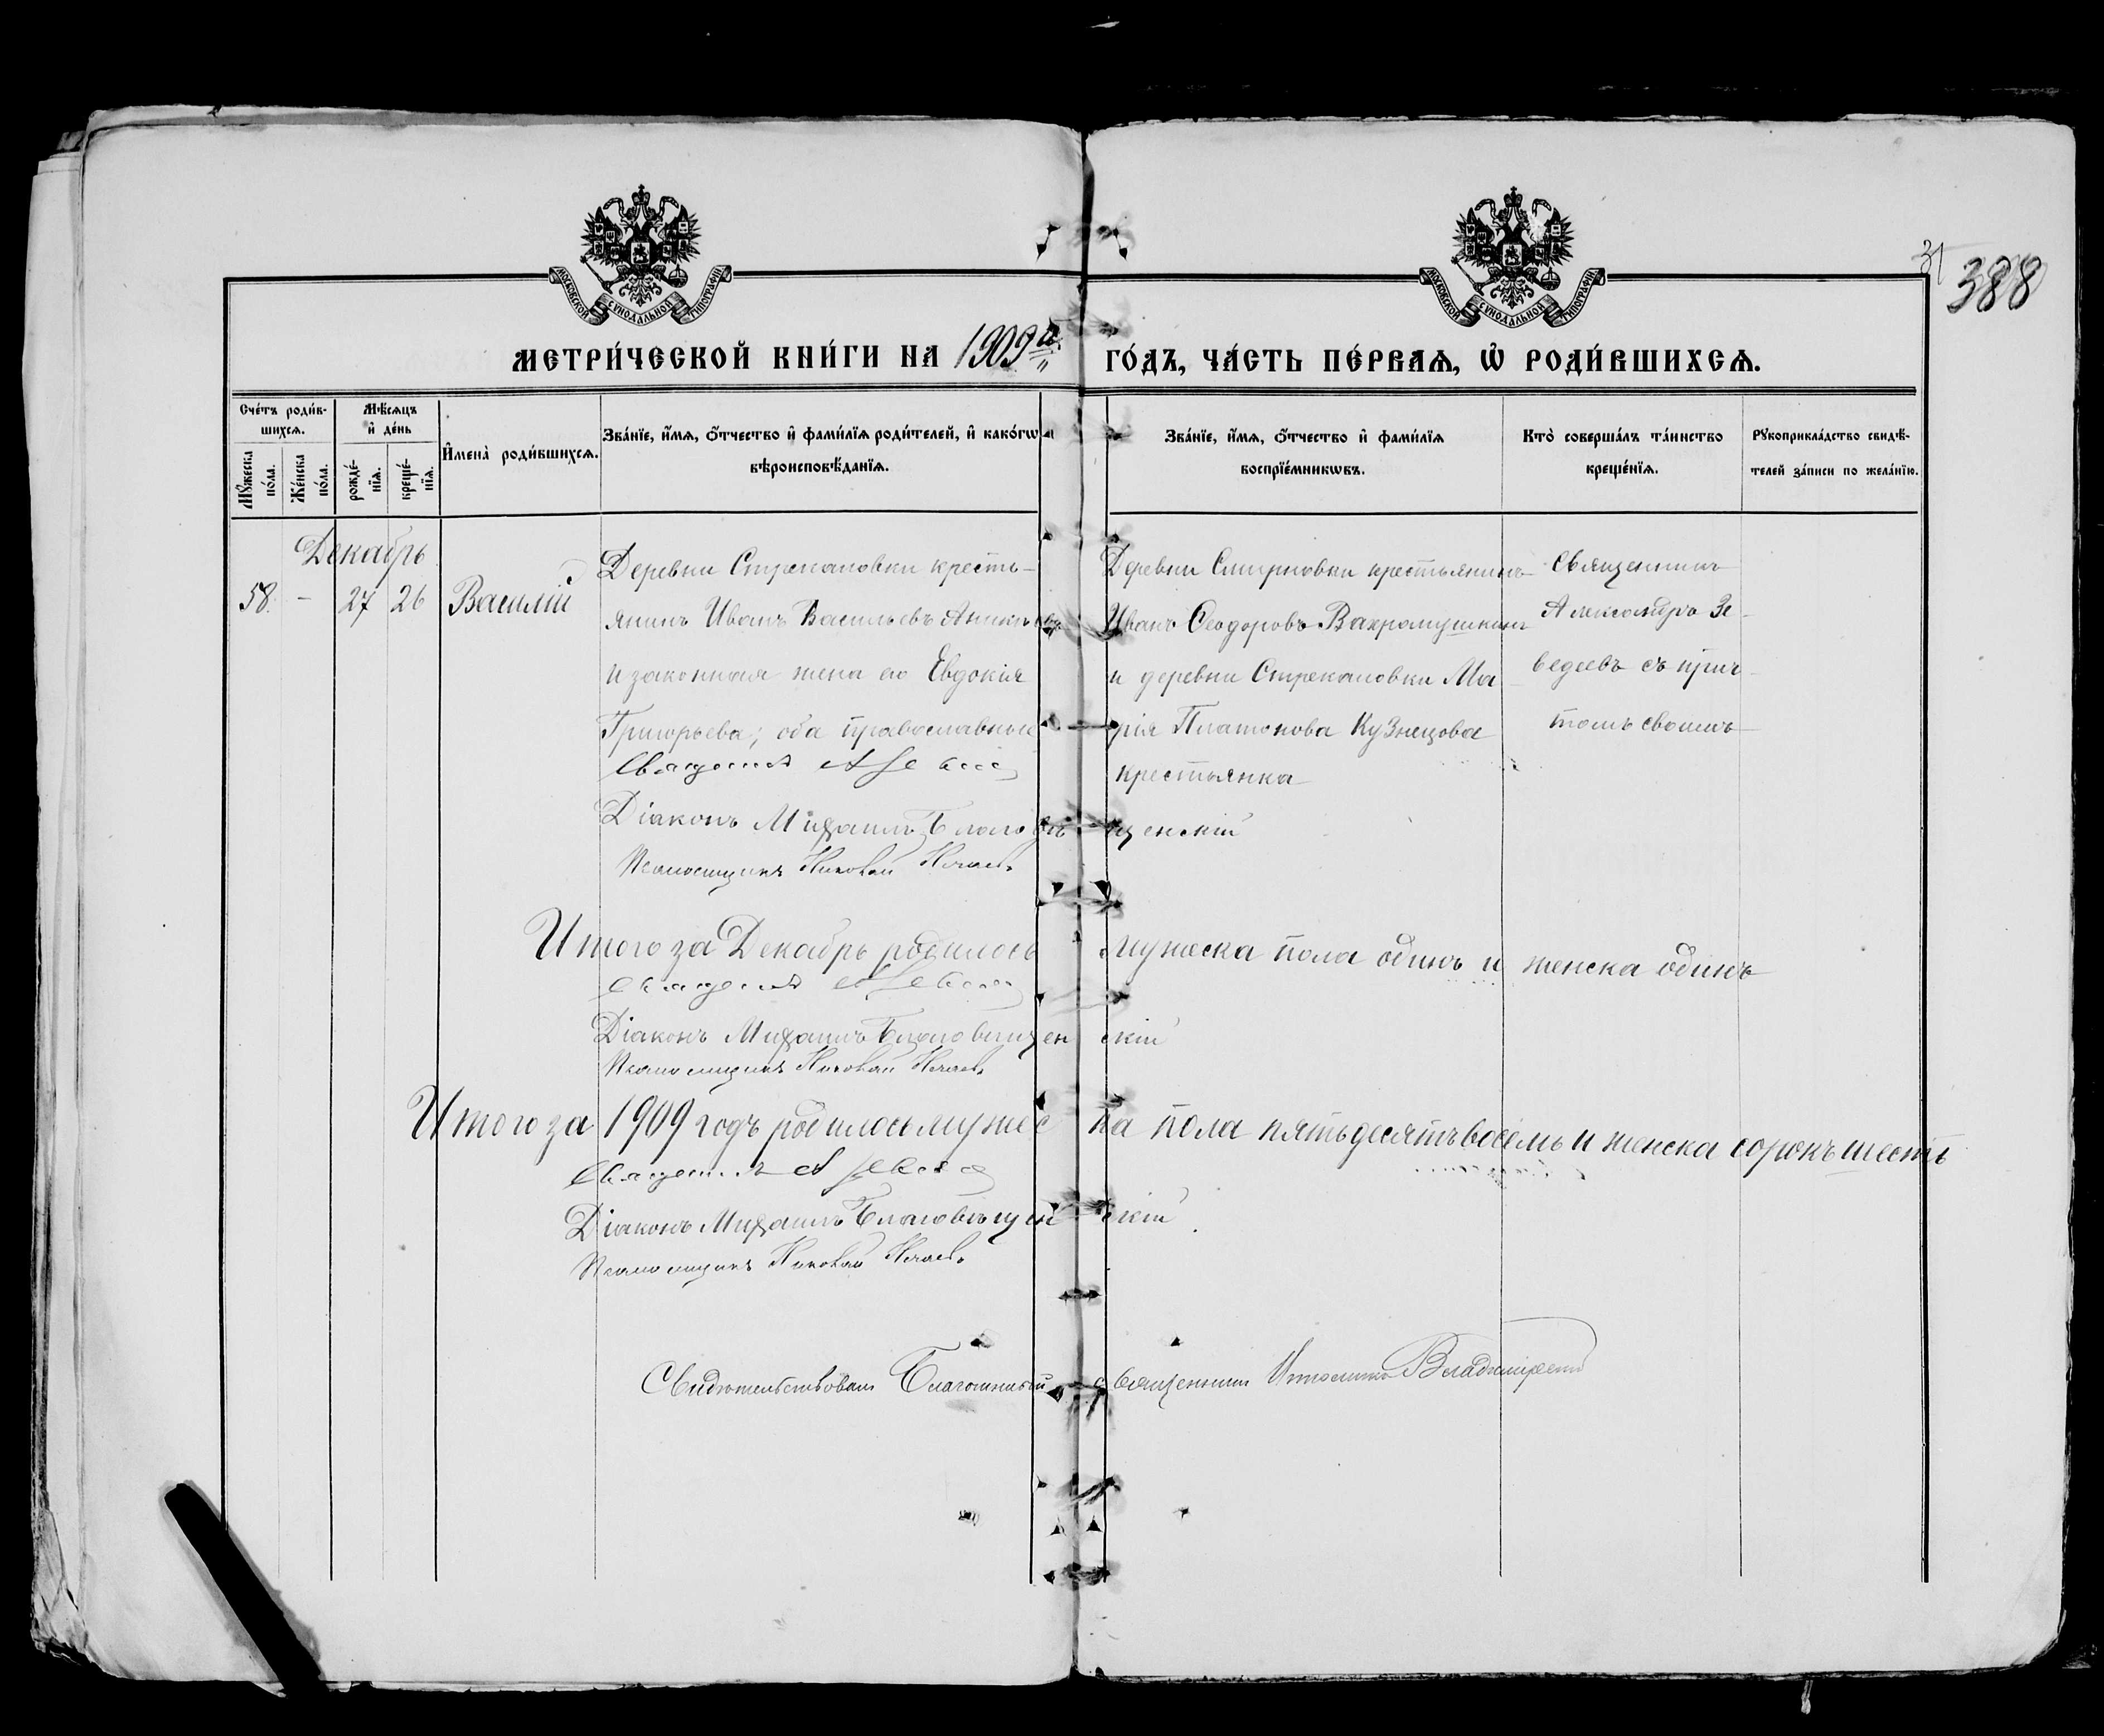 МОСКОВСКОЙ СѴНОДАЛЬНОЙ ТИПОГРАФІИ
МОСКОВСКОЙ СѴНОДАЛЬНОЙ ТИПОГРАФІИ
31
388
МЕТРИ́ЧЕСКОЙ КНИ́ГИ НА 1909й ГО́ДЪ, ЧА́СТЬ ПЕ́РВАѦ, Ѡ҆ РОДИ́ВШИХСѦ.
Сче́тъ роди́в-
шихсѧ.
Мꙋ́жеска
по́ла.
Же́нска
по́ла.
Мѣ́сѧцъ
и҆ де́нь
рожде́-
нїѧ.
креще́-
нїѧ.
И҆мена̀ роди́вшихсѧ.
Зва́нїе, и҆́мѧ, ѻ҆́тчество и҆ фами́лїѧ роди́телей, и҆ како́гѡ
вѣроисповѣ́данїѧ.
Зва́нїе, и҆́мѧ, ѻ҆́тчество и҆ фами́лїѧ
воспрїе́мникѡвъ.
Кто̀ соверша́лъ та́инство
креще́нїѧ.
Рꙋкоприкла́дство свидѣ́-
телей за́писи по жела́нїю.
Декабрь
58. - 27 26 Василій
Деревни Стрекаловки кресть-
янинъ Иванъ Васильевъ Аникинъ
и законная жена его Евдокія
Григорьева; оба православные
Деревни Смирновки крестьянинъ
Иванъ Ѳеодоровъ Вахромушкинъ
и деревни Стрекаловки Ма
рія Платонова Кузнецова
крестьянка
Священникъ
Александръ Зе-
ведеевъ съ прич-
томъ своимъ
Священникъ
Діаконъ Михаилъ Благовѣщенскій
Псаломщикъ Николай
Итого за Декабрь родилось мужеска пола одинъ и женска одинъ
Священникъ
Діаконъ Михаилъ Благовѣщенскій
Псаломщикъ Николай
Итого за 1909 годъ родилось мужеска пола пятьдесятъ восемь и женска сорокъ шесть
Священникъ
Діаконъ Михаилъ Благовѣщенскій
Псаломщикъ Николай
Свидѣтельствовалъ Благочинный священникъ Владимірскій